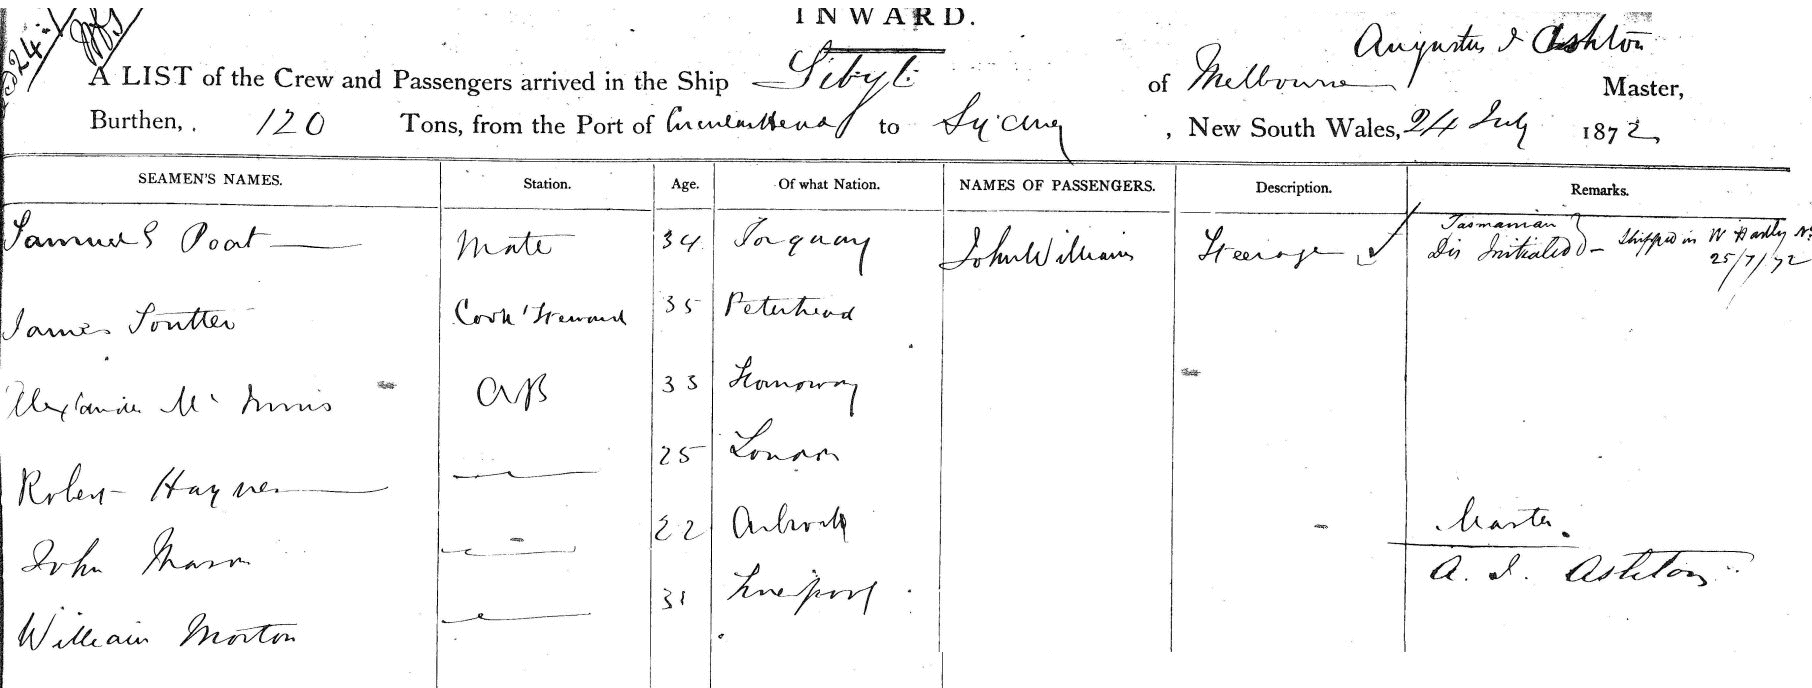 INWARD.
Augustus J Ashton
A LIST of the Crew and Passengers arrived in the Ship Sibyl of Melbourne Master,
Burthen, 120 Tons, from the Port of to Sydney , New South Wales, 24 July 1872
SEAMEN'S NAMES. Station. Age. Of what Nation. NAMES OF PASSENGERS. Description. Remarks.
Samuel Poat Mate 34 Torquay John Williams Steerage ✓ Tasmanian
Dis Initialed - Shipped in W
25/7/72
James Soutter Cook Steward 35 Peterhead
Alexander Mc AB 33 Stornoway
Robert Haynes 25 London
John Mason 22 31 Liverpool
William Morton
Master.
A. J. Ashton